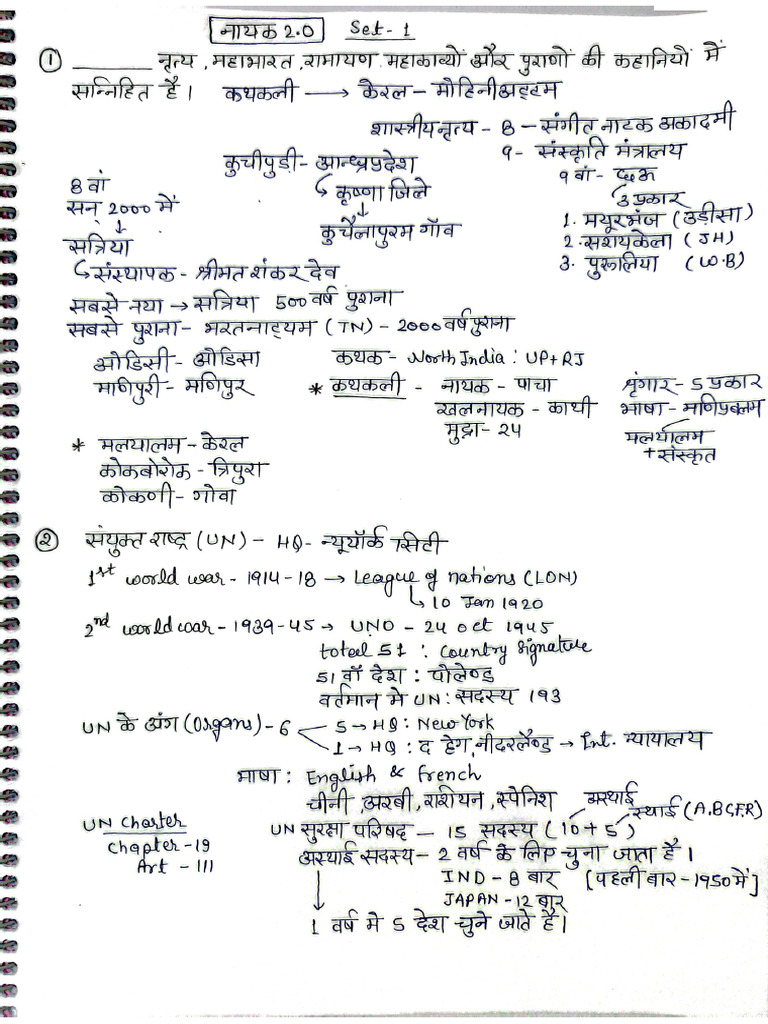 नायक 2.0 Set-1
① ______ नृत्य, महाभारत, रामायण महाकाव्यों और पुराणों की कहानियों में
सन्निहित है। कथकली → केरल - मोहिनीअट्टम
शास्त्रीय नृत्य - 8 - संगीत नाटक अकादमी
9 - संस्कृति मंत्रालय
9 वां - छऊ
↳ 3 प्रकार
1. मयूरभंज (उड़ीसा)
2. सरायकेला (JH)
3. पुरूलिया (W.B)
कुचीपुड़ी - आन्ध्रप्रदेश
↳ कृष्णा जिले
↓
कुचैलापुरम गाँव
8 वां
सन् 2000 में
↓
सत्रिया
↳ संस्थापक - श्रीमत शंकर देव
सबसे नया → सत्रिया 500 वर्ष पुराना
सबसे पुराना - भरतनाट्यम (TN) - 2000 वर्ष पुराना
ओडिसी - ओडिसा
माणिपुरी - मणिपुर
कथक - North India : UP + RJ
* कथकली - नायक - पाचा
खलनायक - काथी
मुद्रा - 24
श्रृंगार - 5 प्रकार
भाषा - मणिप्रबलम
मलयालम
+ संस्कृत
* मलयालम - केरल
कोकबोरोक - त्रिपुरा
कोकणी - गोवा
② संयुक्त राष्ट्र (UN) - HQ - न्यूयॉर्क सिटी
1st world war - 1914-18 → League of nations (LON)
↳ 10 Jan 1920
2nd world war - 1939-45 → UNO - 24 oct 1945
total 51 : Country Signature
51 वाँ देश : पोलैण्ड
वर्तमान मे UN : सदस्य 193
UN के अंग (Organs) - 6
5 → HQ : New York
1 → HQ : द हेग, नीदरलैण्ड → Int. न्यायालय
भाषा : English & French
चीनी, अरबी, राशियन, स्पेनिश
UN Charter
Chapter - 19
Art - 111
अस्थाई
स्थाई (A,B,C,F,R)
UN सुरक्षा परिषद - 15 सदस्य (10 + 5)
अस्थाई सदस्य - 2 वर्ष के लिए चुना जाता है।
IND - 8 बार [पहली बार - 1950 में]
JAPAN - 12 बार
↓
1 वर्ष मे 5 देश चुने जाते है।